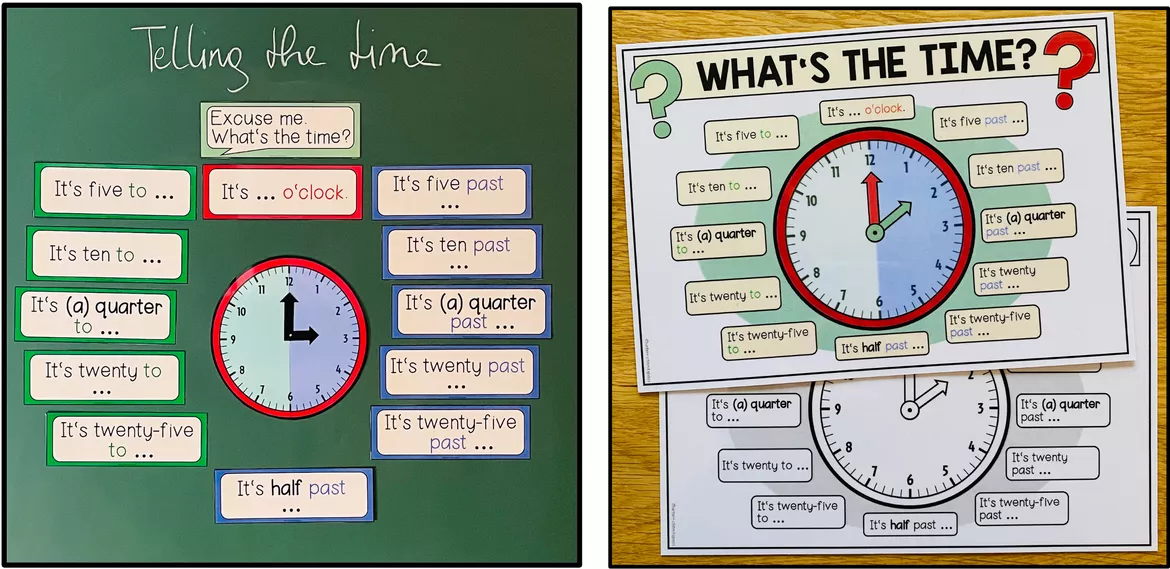 Telling the time
Excuse me.
What's the time?
It's five to ...
It's ... o'clock.
It's five past
...
It's ten to ...
It's ten past
...
It's (a) quarter
to ...
It's (a) quarter
past ...
It's twenty to
...
It's twenty past
...
It's twenty-five
to ...
It's twenty-five
past ...
It's half past
...
12
1
2
3
4
5
6
7
8
9
10
11
WHAT'S THE TIME?
It's ... o'clock.
It's five to ...
It's five past ...
It's ten to ...
It's ten past ...
It's (a) quarter
to ...
It's (a) quarter
past ...
It's twenty to ...
It's twenty
past ...
It's twenty-five
to ...
It's twenty-five
past ...
It's half past ...
12
1
2
3
4
5
6
7
8
9
10
11
It's (a) quarter
to ...
It's (a) quarter
past ...
It's twenty to ...
It's twenty
past ...
It's twenty-five
to ...
It's twenty-five
past ...
It's half past ...
2
3
4
5
6
7
8
9